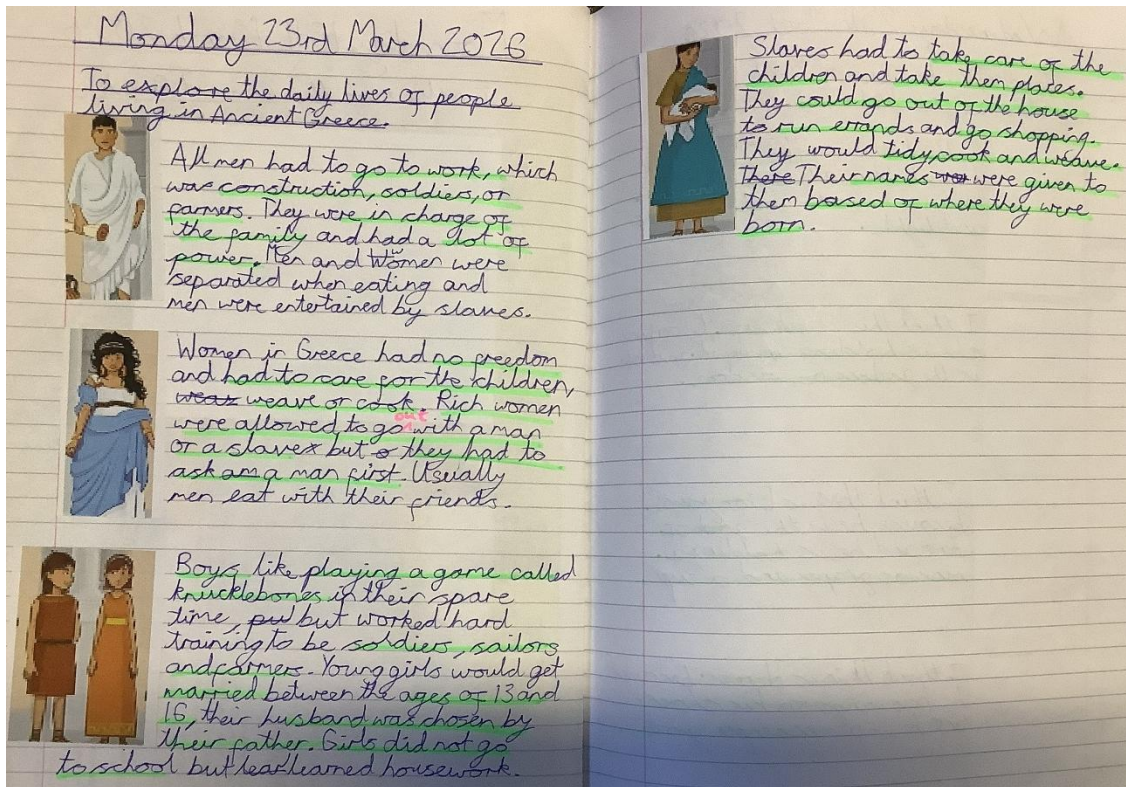 Monday 23rd March 2026
To explore the daily lives of people
living in Ancient Greece.
All men had to go to work, which
was construction, soldiers, or
farmers. They were in charge of
the family and had a lot of
power. Men and Women were
separated when eating and
men were entertained by slaves.
Women in Greece had no freedom
and had to care for the children,
weave or cook. Rich women
were allowed to go out with a man
or a slave but they had to
ask a man first. Usually
men eat with their friends.
Boys like playing a game called
knucklebones in their spare
time, but worked hard
training to be soldiers, sailors
and farmers. Young girls would get
married between the ages of 13 and
16, their husband was chosen by
their father. Girls did not go
to school but learned housework.
Slaves had to take care of the
children and take them places.
They could go out of the house
to run errands and go shopping.
They would tidy, cook and weave.
There Their names were given to
them based of where they were
born.